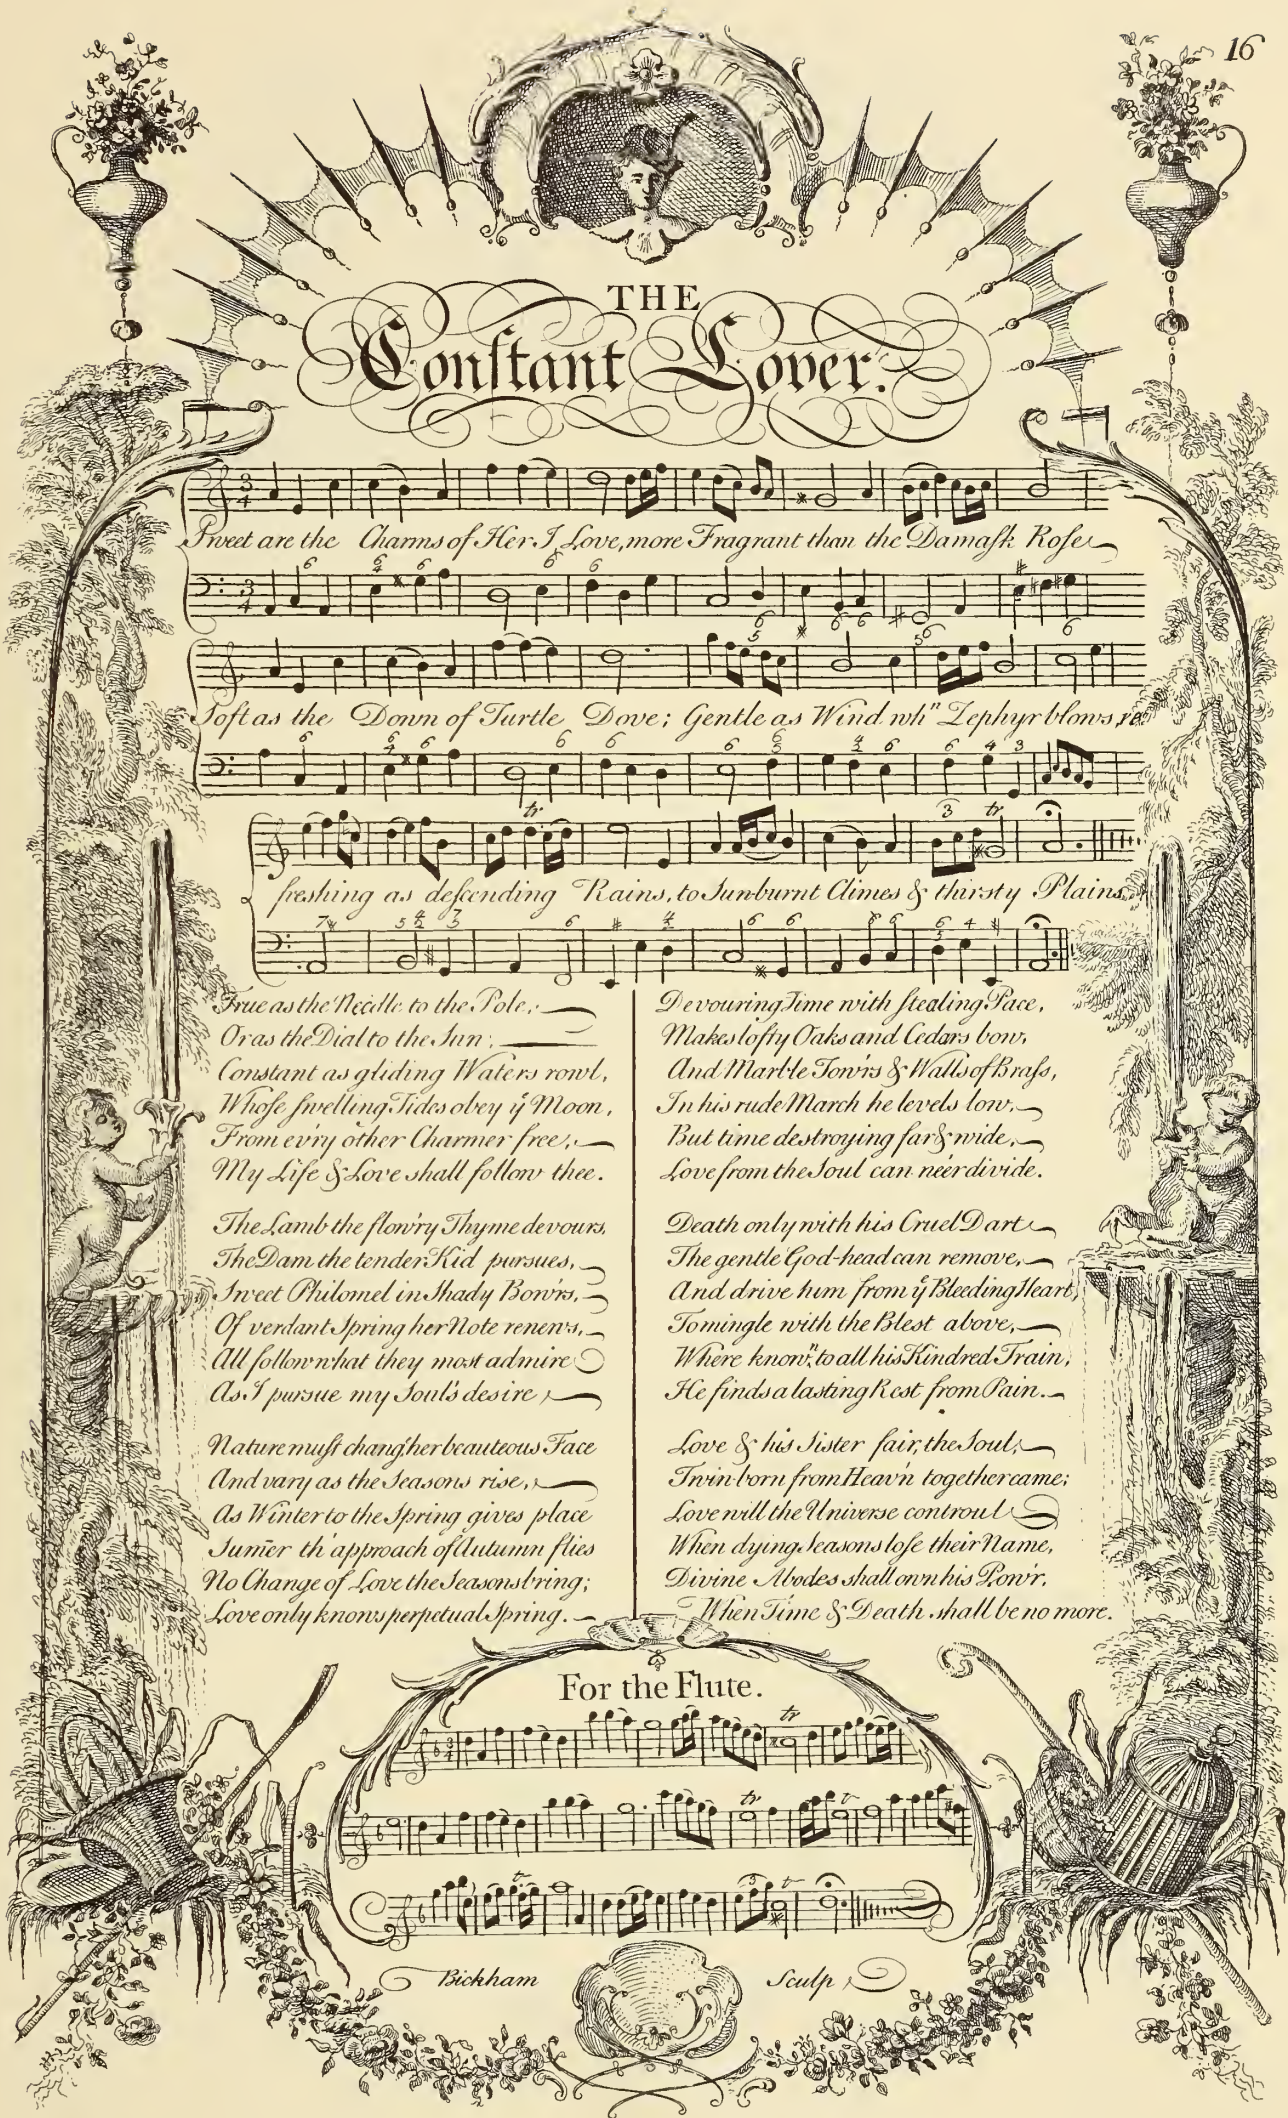 16
THE
Conſtant Lover.
Sweet are the Charms of Her I Love, more Fragrant than the Damaſk Roſe
Soft as the Down of Turtle Dove; Gentle as Wind wh.n Zephyr blows, re
freſhing as deſcending Rains, to Sun-burnt Climes & thirsty Plains.
True as the Needle to the Pole,
Or as the Dial to the Sun;
Constant as gliding Waters rowl,
Whoſe ſwelling Tides obey yͤ Moon,
From ev'ry other Charmer free,
My Life & Love shall follow thee.
The Lamb the flow'ry Thyme devours,
The Dam the tender Kid pursues,
Sweet Philomel in Shady Bow'rs,
Of verdant Spring her Note renews,
All follow what they most admire
As I pursue my Soul's desire,
Nature muſt chang' her beauteous Face
And vary as the Seasons rise,
As Winter to the Spring gives place
Sum̄er th' approach of Autumn flies
No Change of Love the Seasons bring;
Love only knows perpetual Spring.
Devouring Time with ſtealing Pace,
Makes lofty Oaks and Cedars bow,
And Marble Tow'rs & Walls of Braſs,
In his rude March he levels low,
But time destroying far & wide,
Love from the Soul can ne'er divide.
Death only with his Cruel Dart
The gentle God-head can remove,
And drive him from yͤ Bleeding Heart,
To mingle with the Blest above,
Where known, to all his Kindred Train,
He finds a lasting Rest from Pain.
Love & his Sister fair, the Soul,
Twin-born from Heav'n together came;
Love will the Universe controul
When dying Seasons loſe their Name,
Divine Abodes shall own his Pow'r,
When Time & Death shall be no more.
For the Flute.
Bickham Sculp